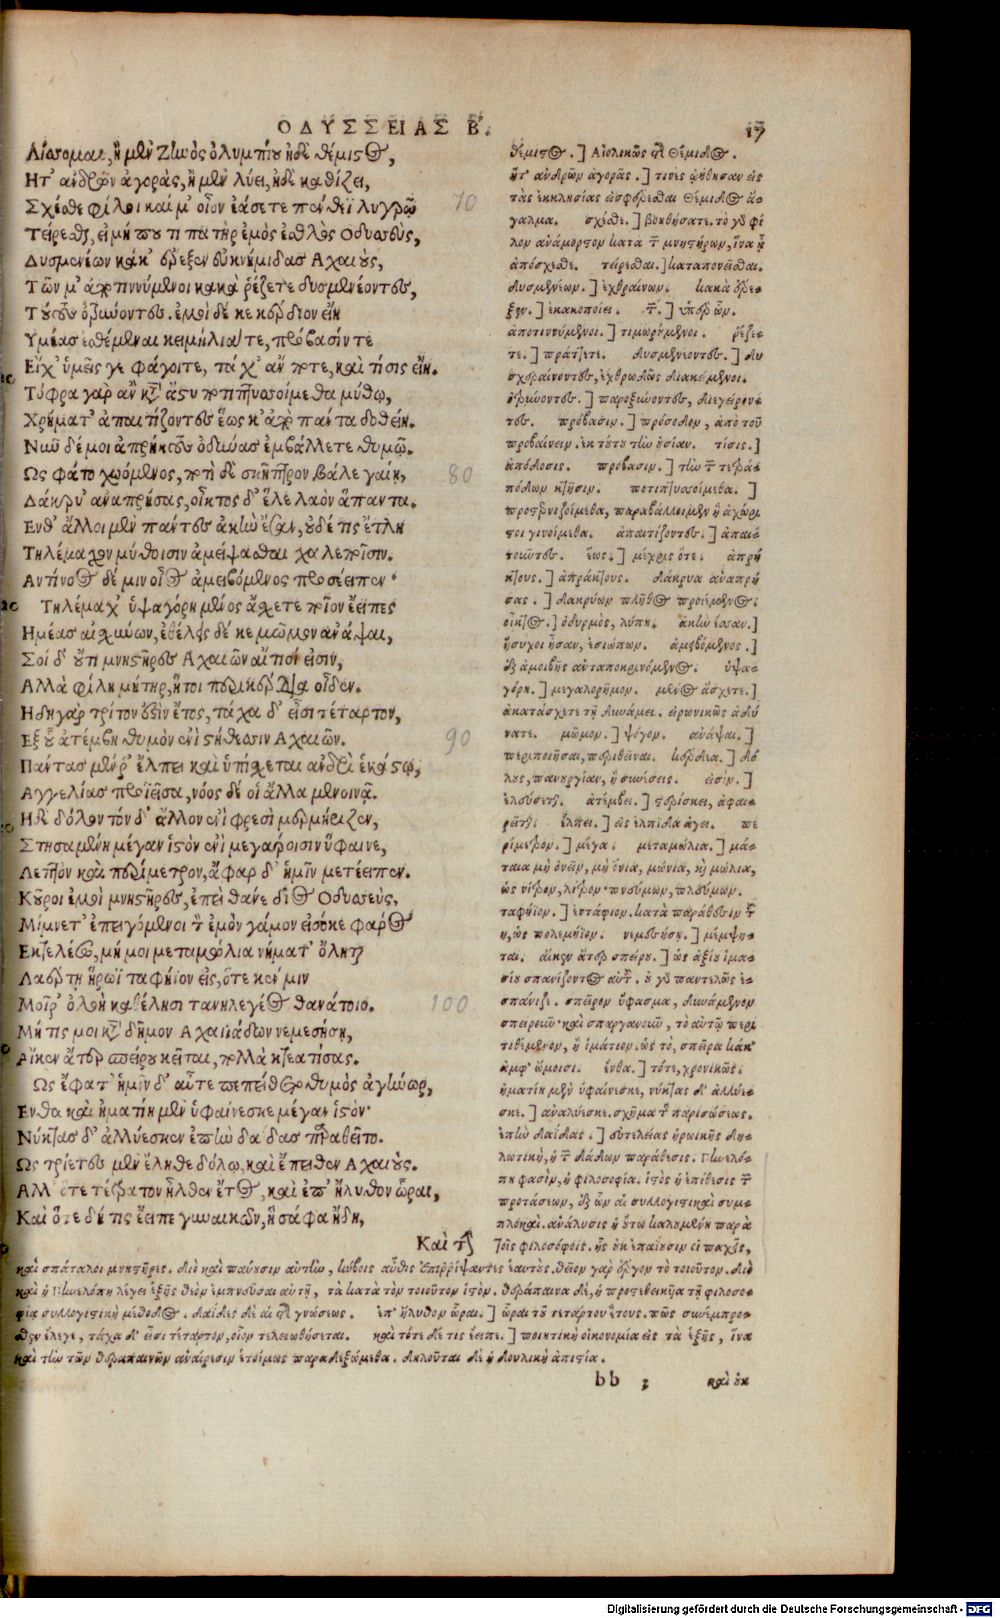 ΟΔΥΣΣΕΙΑΣ Β.
17
Λίσσομαι, ἢ μὲν Ζηνὸς ὀλυμπίου ἠδὲ θέμιστος,
Ητ' ἀνδρῶν ἀγορὰς, ἢ μὲν λύει, ἠδὲ καθίζει,
Σχέσθε φίλοι καί μ' οἶον ἐάσετε πένθεϊ λυγρῷ
Τείρεσθαι, εἰμή που τι πατὴρ ἐμὸς ἐσθλὸς Οδυσσεὺς,
Δυσμενέων κάκ' ἔρεξεν ἐϋκνήμιδας Αχαιοὺς,
Τῶν μ' ἀποτιννύμενοι κακὰ ῥέζετε δυσμενέοντες,
Τούτους ὀτρύνοντες. ἐμοὶ δέ κε κέρδιον εἴη
Υμέας ἐσθέμεναι κειμήλιά τε, πρόβασίν τε
Εἴχ' ὑμεῖς γε φάγοιτε, τάχ' ἄν ποτε, καὶ τίσις εἴη.
Τόφρα γὰρ ἂν κατ' ἄστυ ποτιπτυσσοίμεθα μύθῳ,
Χρήματ' ἀπαιτίζοντες ἕως κ' ἀπὸ πάντα δοθείη.
Νῦν δέ μοι ἀπρήκτους ὀδύνας ἐμβάλλετε θυμῷ.
Ως φάτο χωόμενος, ποτὶ δὲ σκῆπτρον βάλε γαίῃ,
Δάκρυ' ἀναπρήσας, οἶκτος δ' ἕλε λαὸν ἅπαντα.
Ενθ' ἄλλοι μὲν πάντες ἀκὴν ἔσαν, οὐδέ τις ἔτλη
Τηλέμαχον μύθοισιν ἀμείψασθαι χαλεποῖσιν.
Αντίνοος δέ μιν οἶος ἀμειβόμενος προσέειπεν·
Τηλέμαχ' ὑψαγόρη μένος ἄσχετε ποῖον ἔειπες
Ημέας αἰσχύνων, ἐθέλεις δέ κε μῶμον ἀνάψαι,
Σοὶ δ' οὔτι μνηστῆρες Αχαιῶν αἴτιοί εἰσιν,
Αλλὰ φίλη μήτηρ, ἥτοι περικέρδεα οἶδεν.
Ηδη γὰρ τρίτον ἐστὶν ἔτος, τάχα δ' εἶσι τέταρτον,
Εξ οὗ ἀτέμβει θυμὸν ἐνὶ στήθεσσιν Αχαιῶν.
Πάντας μέν ῥ' ἔλπει καὶ ὑπίσχεται ἀνδρὶ ἑκάστῳ,
Αγγελίας προϊεῖσα, νόος δέ οἱ ἄλλα μενοινᾷ.
Ηδὲ δόλον τόνδ' ἄλλον ἐνὶ φρεσὶ μερμήριξεν,
Στησαμένη μέγαν ἱστὸν ἐνὶ μεγάροισιν ὕφαινε,
Λεπτὸν καὶ περίμετρον, ἄφαρ δ' ἡμῖν μετέειπεν.
Κοῦροι ἐμοὶ μνηστῆρες, ἐπεὶ θάνε δῖος Οδυσσεὺς,
Μίμνετ' ἐπειγόμενοι τὸν ἐμὸν γάμον εἰσόκε φᾶρος
Εκτελέσω, μή μοι μεταμώλια νήματ' ὄληται
Λαέρτῃ ἥρωϊ ταφήϊον εἰς, ὅτε κέν μιν
Μοῖρ' ὀλοὴ καθέλησι τανηλεγέος θανάτοιο.
Μή τίς μοι κατὰ δῆμον Αχαιιάδων νεμεσήσῃ,
Αἴκεν ἄτερ σπείρου κεῖται, πολλὰ κτεατίσσας.
Ως ἔφαθ' ἡμῖν δ' αὖτε ἐπεπείθετο θυμὸς ἀγήνωρ,
Ενθα καὶ ἠματίη μὲν ὑφαίνεσκε μέγαν ἱστὸν·
Νύκτας δ' ἀλλύεσκεν ἐπὴν δαΐδας παραθεῖτο.
Ως τρίετες μὲν ἔληθε δόλῳ, καὶ ἔπειθεν Αχαιούς.
Αλλ' ὅτε τέτρατον ἦλθεν ἔτος, καὶ ἐπ' ἤλυθον ὧραι,
Καὶ ὅτε δή τις ἔειπε γυναικῶν, ἣ σάφα ᾔδη,
Καὶ τὴν
70
80
90
100
θέμιστος.] Αἰολικῶς ἀπὸ Θέμιδος.
ἤτ' ἀνδρῶν ἀγοράς.] τινὲς ᾠήθησαν εἰς
τὰς ἐκκλησίας εἰσφέρεσθαι Θέμιδος ἄ-
γαλμα. σχέσθε.] βοηθήσατε. τὸ γὰρ φί
λοι ἀνάμορτον κατὰ τῶν μνηστήρων, ἵνα ᾖ
ἀπόσχεσθε. τείρεσθαι.] καταπονεῖσθαι.
δυσμενέων.] ἐχθραίνων. κακὰ ἔρε-
ξεν.] ἐκακοποίει. τῶν.] ὑπὲρ ὧν.
ἀποτιννύμενοι.] τιμωρούμενοι. ῥέζε-
τε.] πράττετε. δυσμενέοντες.] δυ
σχεραίνοντες, ἐχθρωδῶς διακείμενοι.
ὀτρύνοντες.] παροξύνοντες, διεγείρον-
τες. πρόβασιν.] πρόσοδον, ἀπὸ τοῦ
προβαίνειν. ἐκ τούτου τὴν οὐσίαν. τίσις.]
ἀπόδοσις. πρόβασιν.] τὴν τῶν τετρά-
πόδων κτῆσιν. ποτιπτυσσοίμεθα.]
προσφωνιζοίμεθα, παραβάλλοιμεν ἢ ἀχώρι
στοι γινοίμεθα. ἀπαιτίζοντες.] ἀπαι-
τοῦντες. ἕως.] μέχρις ὅτε. ἀπρή
κτους.] ἀπράκτους. δάκρυα ἀναπρή
σας.] δακρύων πλῆθος προϊέμενος.
οἶκτος.] ὀδυρμὸς, λύπη. ἀκὴν ἔσαν.]
ἥσυχοι ἦσαν, ἐσιώπων. ἀμειβόμενος.]
ἐξ ἀμοιβῆς ἀνταποκρινόμενος. ὑψα-
γόρη.] μεγαλορῆμον. μένος ἄσχετε.]
ἀκατάσχετε τῇ δυνάμει. εἰρωνικῶς ἀδύ
νατε. μῶμον.] ψόγον. ἀνάψαι.]
περιποιῆσαι, περιθεῖναι. κέρδεα.] δό
λους, πανουργίαν, ἢ συνέσεις. εἶσιν.]
ἐλεύσεται. ἀτέμβει.] στερίσκει, ἀφαι-
ρεῖται. ἔλπει.] εἰς ἐλπίδα ἄγει. πε
ρίμετρον.] μέγα. μεταμώλια.] μά-
ταια μὴ ὀνεῖν, μὴ ὄνια, μώνια, καὶ μώλια,
ὡς νίτρον, λίτρον· πνεύμων, πλεύμων.
ταφήϊον.] ἐντάφιον. κατὰ παράθεσιν τοῦ
η, ὡς πολεμήϊον. νεμεσήσῃ.] μέμψη-
ται. αἴκεν ἄτερ σπείρου.] ὡς ἀξίου ἱμα-
τίου σπανίζοντος αὐτοῦ. οὐ γὰρ παντελῶς ἐ-
σπάνιζε. σπεῖρον ὕφασμα, δυνάμενον
σπειροῦν· καὶ σπαργανοῦν, τὸ αὐτῷ περι
τιθέμενον, ἢ ἱμάτιον. ὡς τὸ, σπεῖρα κάκ'
ἀμφ' ὤμοισι. ἔνθα.] τότε, χρονικῶς.
ἠματίη μὲν ὑφαίνεσκε, νύκτας δ' ἀλλύε-
σκε.] ἀναλύεσκε. σχῆμα τὸ παρισώσεως.
ἐπὴν δαΐδας.] εὐτελείας ἡρωικῆς δη-
λωτικὴ, ἡ τῶν δᾴδων παράθεσις. Πηνελό-
πη φασὶν, ἡ φιλοσοφία. ἱστὸς ἡ ἐπίθεσις τῶν
προτάσεων, ἐξ ὧν αἱ συλλογιστικαὶ συμ-
πλοκαί. ἀνάλυσις ἡ οὕτω καλουμένη παρὰ
τοῖς φιλοσόφοις. ἧς οὐκ ἐπαΐουσιν οἱ παχεῖς,
καὶ σπάταλοι μνηστῆρες. διὸ καὶ παύουσιν αὐτὴν, κύβοις αὖθις ἐπιρρίψαντες ἑαυτούς. θεῖον γὰρ ἔργον τὸ τοιοῦτον. διὸ
καὶ ἡ Πηνελόπη λέγει ἑξῆς θεὸν ἐμπνεῦσαι αὐτῇ, τὰ κατὰ τὸν τοιοῦτον ἱστόν. θεράπαινα δὲ, ἡ προστεθεικυῖα τῇ φιλοσο-
φίᾳ συλλογιστικὴ μέθοδος. δαΐδες δὲ αἱ ἀπὸ γνώσεως. ἐπ' ἤλυθον ὧραι.] ὧραι τοῦ τετάρτου ἔτους. πῶς συνέμπρο-
σθεν ἔλεγε, τάχα δ' εἶσι τέταρτον, οἷον τελειωθήσεται. καὶ τότε δέ τις ἔειπε.] ποιητικὴ οἰκονομία εἰς τὰ ἑξῆς, ἵνα
καὶ τὴν τῶν θεραπαινῶν ἀναίρεσιν ἑτοίμως παραδεξώμεθα. δηλοῦται δὲ ἡ δουλικὴ ἀπιστία.
bb 3
καὶ οὐκ
Digitalisierung gefördert durch die Deutsche Forschungsgemeinschaft - DFG